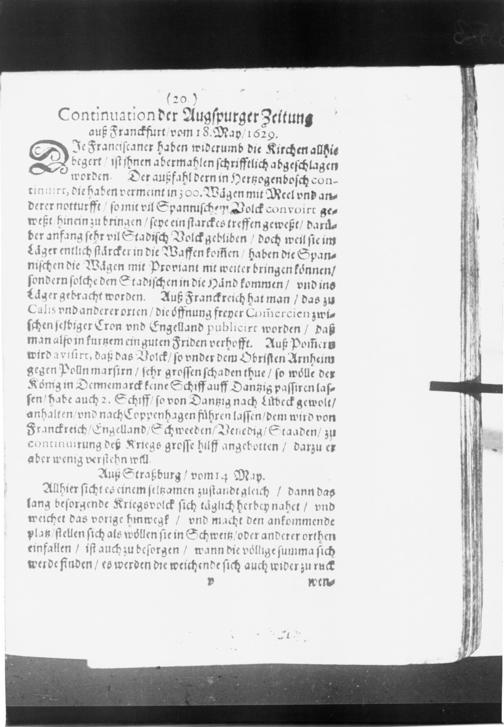 (20.)
Continuation der Augspurger Zeitung
auß Franckfurt/vom 18. May/1629.
DIe Franciscaner haben widerumb die Kirchen allhie
begert/ ist ihnen abermahlen schrifftlich abgeschlagen
worden. Der außfahl dern in Hertzogenbosch con-
tinuirt, die haben vermeint in 300. Wägen mit Meel vnd an-
derer notturfft/ so mit vil Spannischem Volck convoirt ge-
weßt hinein zu bringen/ seye ein starckes treffen geweßt/ darü-
ber anfang sehr vil Stadisch Volck gebliben/ doch weil sie ins
Läger entlich stärcker in die Waffen kom̃en/ haben die Span-
nischen die Wägen mit Proviant nit weiter bringen können/
sondern solche den Stadischen in die Händ kommen/ vnd ins
Läger gebracht worden. Auß Franckreich hat man/ das zu
Calis vnd anderer orten/ die öffnung freyer Com̃ercien zwi-
schen selbiger Cron vnd Engelland publicirt worden/ daß
man also in kurtzem ein guten Friden verhofft. Auß Pom̃ern
wird avisirt, daß das Volck/ so vnder dem Obristen Arnheim
gegen Polln marsirn/ sehr grossen schaden thue/ so wölle der
König in Dennemarck keine Schiff auff Dantzig passiren las-
sen/ habe auch 2. Schiff/ so von Dantzig nach Lübeck gewolt/
anhalten/ vnd nach Coppenhagen führen lassen/ dem wird von
Franckreich/ Engelland/ Schweeden/ Venedig/ Staaden/ zu
continuirung deß Kriegs grosse hilff angebotten/ darzu er
aber wenig verstehn will.
Auß Straßburg/ vom 14. May.
Allhier sicht es einem seltzamen zustandt gleich/ dann das
lang besorgende Kriegsvolck sich täglich herbey nahet/ vnd
weichet das vorige hinwegk/ vnd macht den ankommende
platz/ stellen sich als wöllen sie in Schweitz/ oder anderer orthen
einfallen/ ist auch zu besorgen/ wann die völlige summa sich
werde finden/ es werden die weichende sich auch wider zu ruck
v wen-